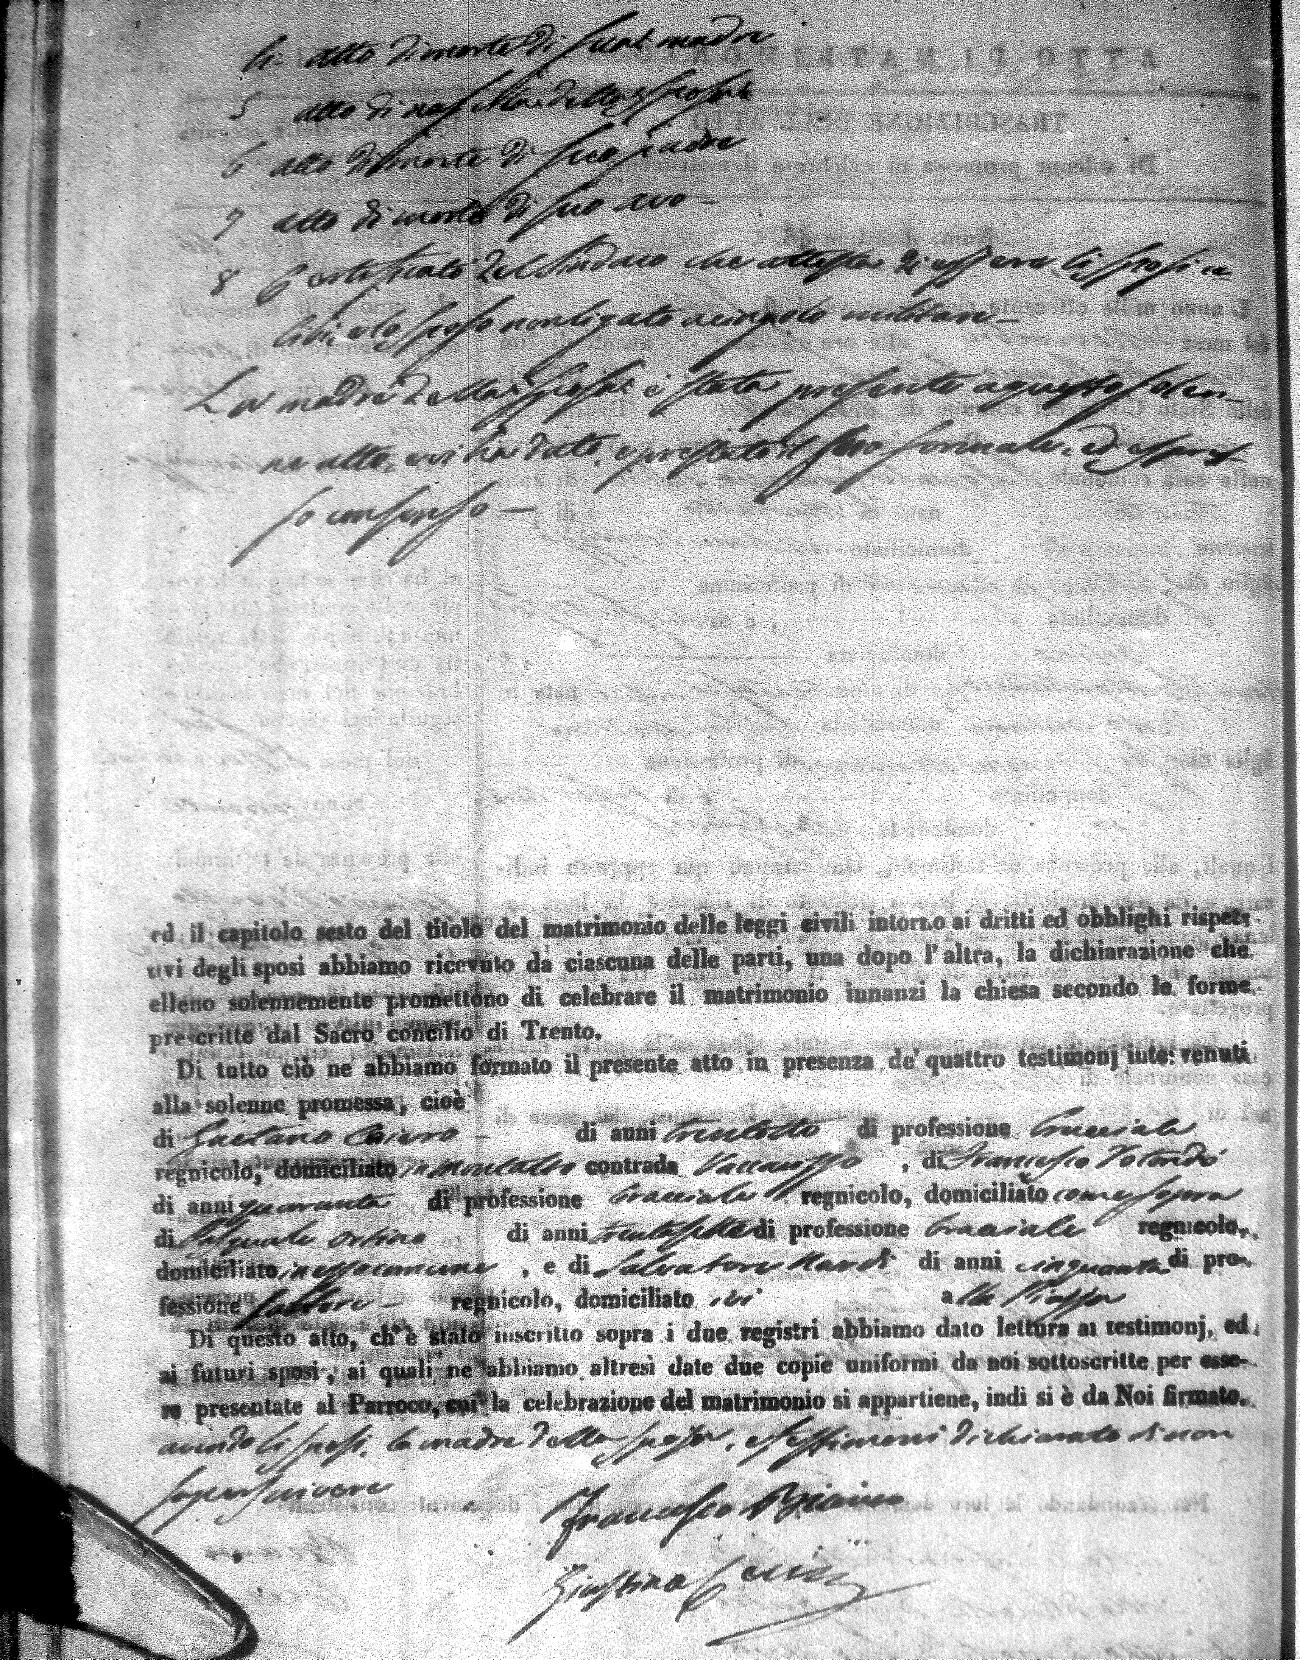 4. atto di morte di sua madre
5 atto di nascita della sposa
6 atto di morte di suo padre
7 atto di morte di suo avo
8 Certificato del Sindaco che attesta di essere li sposi
libri, e lo sposo non ligato a vincolo militare
La madre della sposa è stata presente a questo solen-
ne atto, e vi ha dato, e prestato il suo formale, ed espres-
so consenso
ed il capitolo sesto del titolo del matrimonio delle leggi civili intorno ai dritti ed obblighi rispet-
tivi degli sposi abbiamo ricevuto da ciascuna delle parti, una dopo l'altra, la dichiarazione che
elleno solennemente promettono di celebrare il matrimonio innanzi la chiesa secondo le forme
prescritte dal Sacro concilio di Trento.
Di tutto ciò ne abbiamo formato il presente atto in presenza de' quattro testimonj intervenuti
alla solenne promessa, cioè
di Gaetano di anni trentotto di professione bracciale
regnicolo, domiciliato in Montalto contrada Vaccarizzo, di Francesco
di anni quaranta di professione bracciale regnicolo, domiciliato come sopra
di Pasquale di anni trentasette di professione bracciale regnicolo,
domiciliato in esso comune, e di Salvatore Nardi di anni cinquanta di pro-
fessione regnicolo, domiciliato ivi alla Piazza
Di questo atto, ch'è stato inscritto sopra i due registri abbiamo dato lettura ai testimonj, ed
ai futuri sposi, ai quali ne abbiamo altresì date due copie uniformi da noi sottoscritte per esse-
re presentate al Parroco, cui la celebrazione del matrimonio si appartiene, indi si è da Noi firmato.
avendo li sposi, la madre della sposa, e testimoni dichiarato di non
saper scrivere
Francesco
Giustino